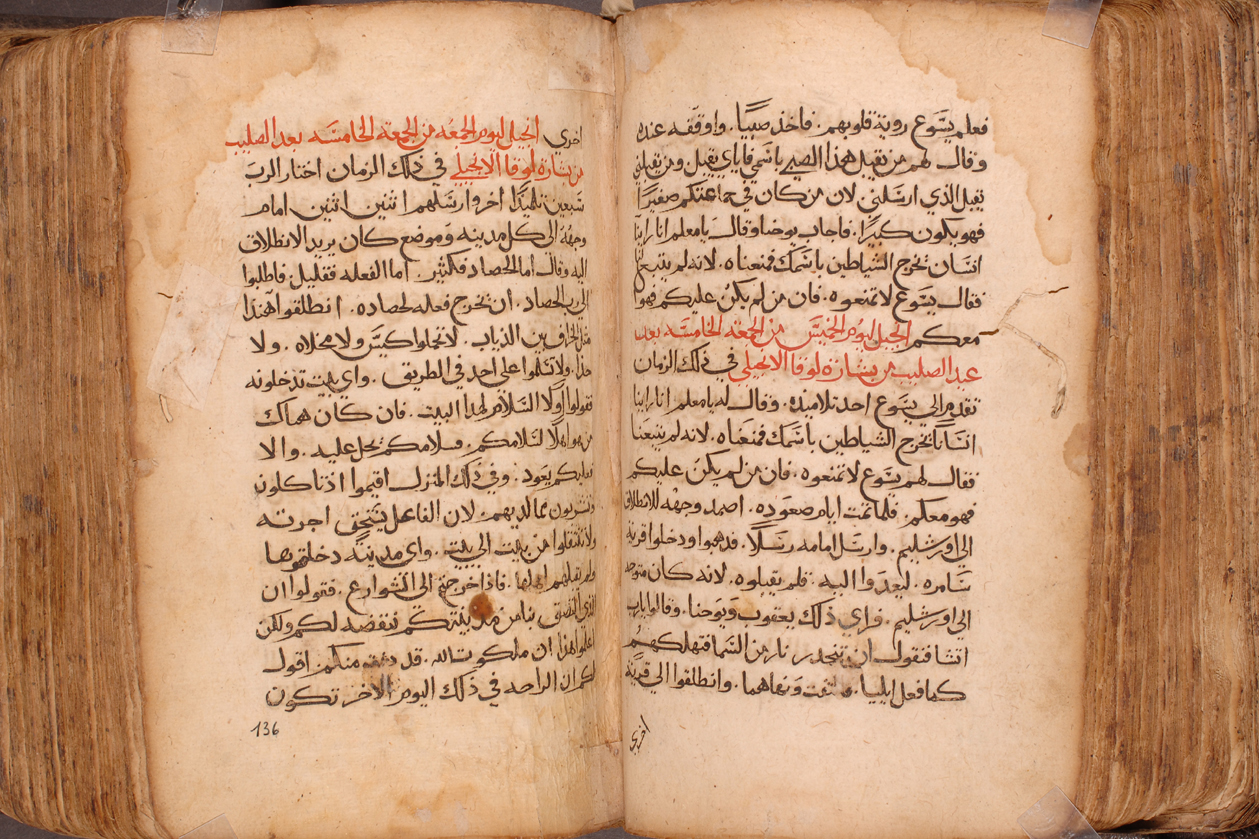 فعلم يسوع روية قلوبهم. فاخذ صبيا. واوقفه عنده
وقال لهم من يقبل هذا الصبي باسمي فاياي يقبل ومن يقبلني
يقبل الذي ارسلني لان من كان في جماعتكم صغيرا
فهو يكون كبيرا. فاجاب يوحنا وقال يا معلم انا راينا
انسان يخرج الشياطين باسمك فمنعناه. لانه لم يتبعنا
فقال يسوع لا تمنعوه. فان من لم يكن عليكم فهوا
معكم انجيل ليوم الخميس من الجمعه الخامسه بعد
عيد الصليب من بشارة لوقا الانجيلي في ذلك الزمان
تقدم الي يسوع احد تلاميذه. وقال له يا معلم انا راينا
انسانا يخرج الشياطين باسمك فمنعناه. لانه لم يتبعنا
فقال لهم يسوع لا تمنعوه. فان من لم يكن عليكم
فهو معكم. فلما تمت ايام صعوده. اصمد وجهه للانطلاق
الي اورشليم. وارسل امامه رسلا. فدهبوا ودخلوا قرية
سامره. ليعدوا اليه. فلم يقبلوه. لانه كان متوجه
الي اورشليم. فراي ذلك يعقوب ويوحنا. وقالوا يارب
اتشا فنقول ان تنحدر نار من السما فتهلكهم
كما فعل ايليا. فالتفت ونهاهما. وانطلقوا الي قرية
اخرى
اخرى انجيل ليوم الجمعه من الجمعه الخامسه بعد الصليب
من بشارة لوقا الانجيلي في ذلك الزمان اختار الرب
سبعين تلميذا اخر وارسلهم اثنين اثنين امام
وجهه الى كل مدينه وموضع كان يريد الانطلاق
اليه وقال اما الحصاد فكثير اما الفعله فقليل فاطلبوا
الى رب الحصاد. ان يخرج فعله لحصاده. انطلقوا هذا
مثل الخراف بين الذياب. لا تحملوا كيس ولا مخلاه. ولا
حذا. ولا تسلموا على احد في الطريق. واي بيت تدخلونه
فقولوا اولا السلام لهذا البيت. فان كان هناك
من هو اهلا لسلامكم. فسلامكم يحل عليه. والا
فعليكم يعود. وفي ذلك المنزل اقيموا اذ تاكلون
وتشربون مما لديهم. لان الفاعل يستحق اجرته
ولا تنتقلوا من بيت الى بيت. واي مدينة دخلتموها
ولم يقبلهم اهلها. فاذا خرجتم الى الشوارع. فقولوا ان
الذي التصق بنا من مدينتكم ننفضه لكم ولكن
اعلموا هذا ان ملكوت الله. قد منكم. اقول
لكم ان الراحه في ذلك اليوم الاخر تكون
136